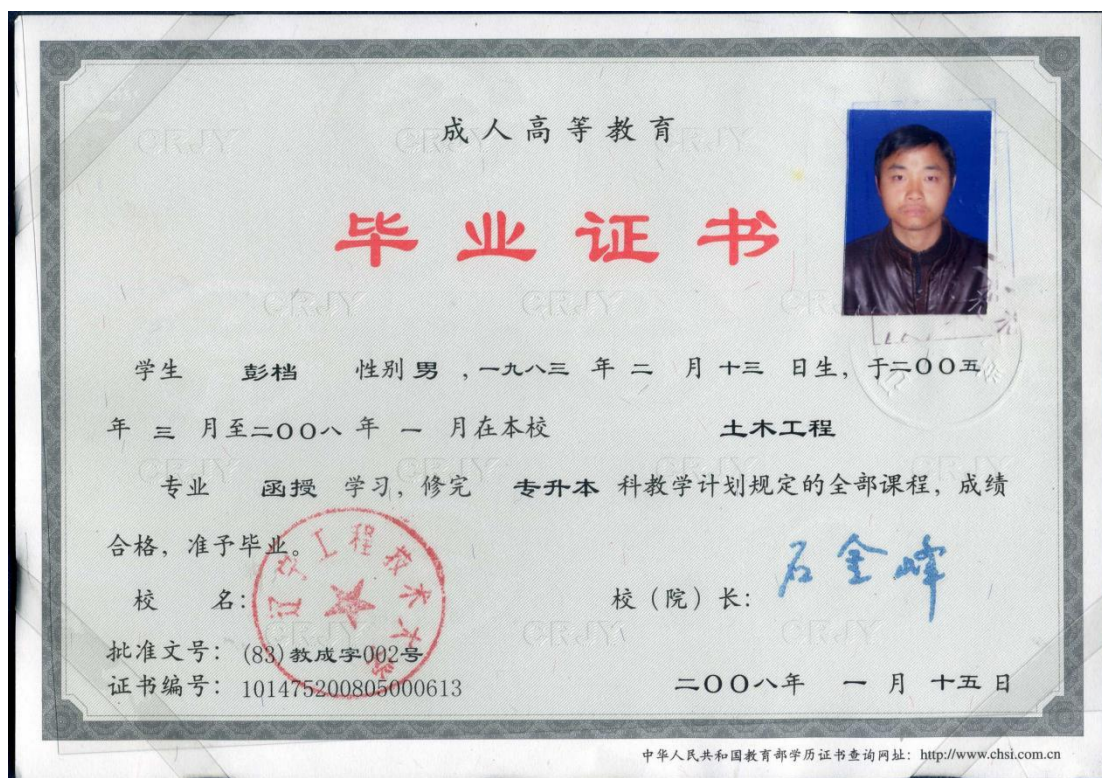 成人高等教育
毕业证书
学生 彭档 性别 男 ,一九八三 年 二 月 十三 日生, 于二00五
年 三 月至二00八 年 一 月在本校 土木工程
专业 函授 学习, 修完 专升本 科教学计划规定的全部课程, 成绩
合格, 准予毕业。
辽宁工程技术大学
校 名: 校 (院) 长: 石金峰
批准文号: (83)教成字002号
证书编号: 101475200805000613 二00八年 一 月 十五 日
中华人民共和国教育部学历证书查询网址: http://www.chsi.com.cn
CRJY